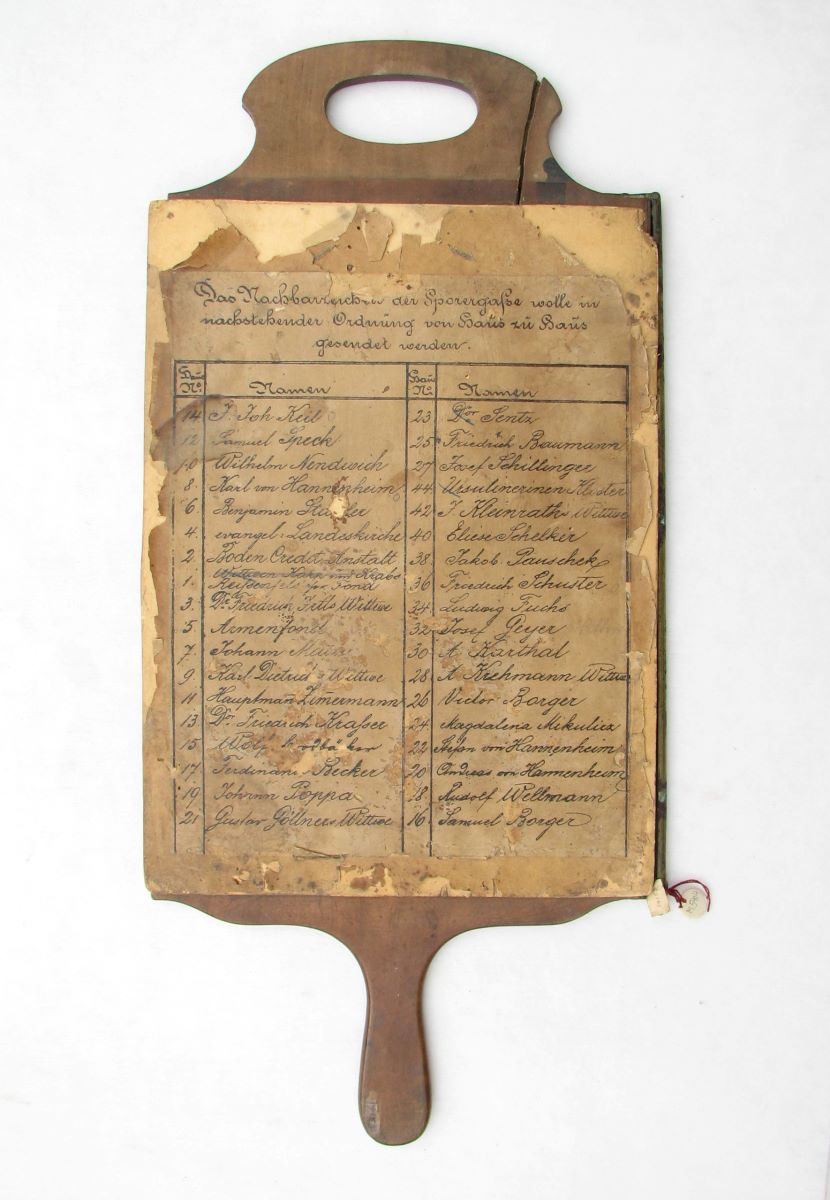 Das Nachbarzeichen der Sporergaße wolle in
nachstehender Ordnung von Haus zu Haus
gesendet werden.
Haus No. Namen
14 J. Joh Keil
12 Samuel Speck
10 Wilhelm Nendwich
8. Karl von Hannenheim
6. Benjamin
4. evangel: Landeskirche
2. Boden Credit Anstalt
1. Fond
3. Dr. Friedrich Wittwe
5 Armenfond
7. Johann
9 Karl Wittwe
11 Hauptman Zimermann
13 Dr. Friedrich Kraßer
15 Wolf
17 Ferdinand Becker
19 Johann Poppa
21 Gustav Göllners Wittwe
Haus No. Namen
23 Dor Sentz
25 Friedrich Baumann
27 Josef Schillinger
44 Ursulinerinen Kloster
42 J. Kleinraths Wittwe
40 Eliese Schelkir
38 Jakob. Pauschek
36 Friedrich Schuster
34 Ludwig Fuchs
32 Josef Geyer
30 A Karthal
28 A Krehmann Wittwe
26 Victor Borger
24 Magdalena Mikulicz
22 Stefan von Hannenheim
20 Andreas von Hannenheim
18 Rudolf Wellmann
16 Samuel Borger